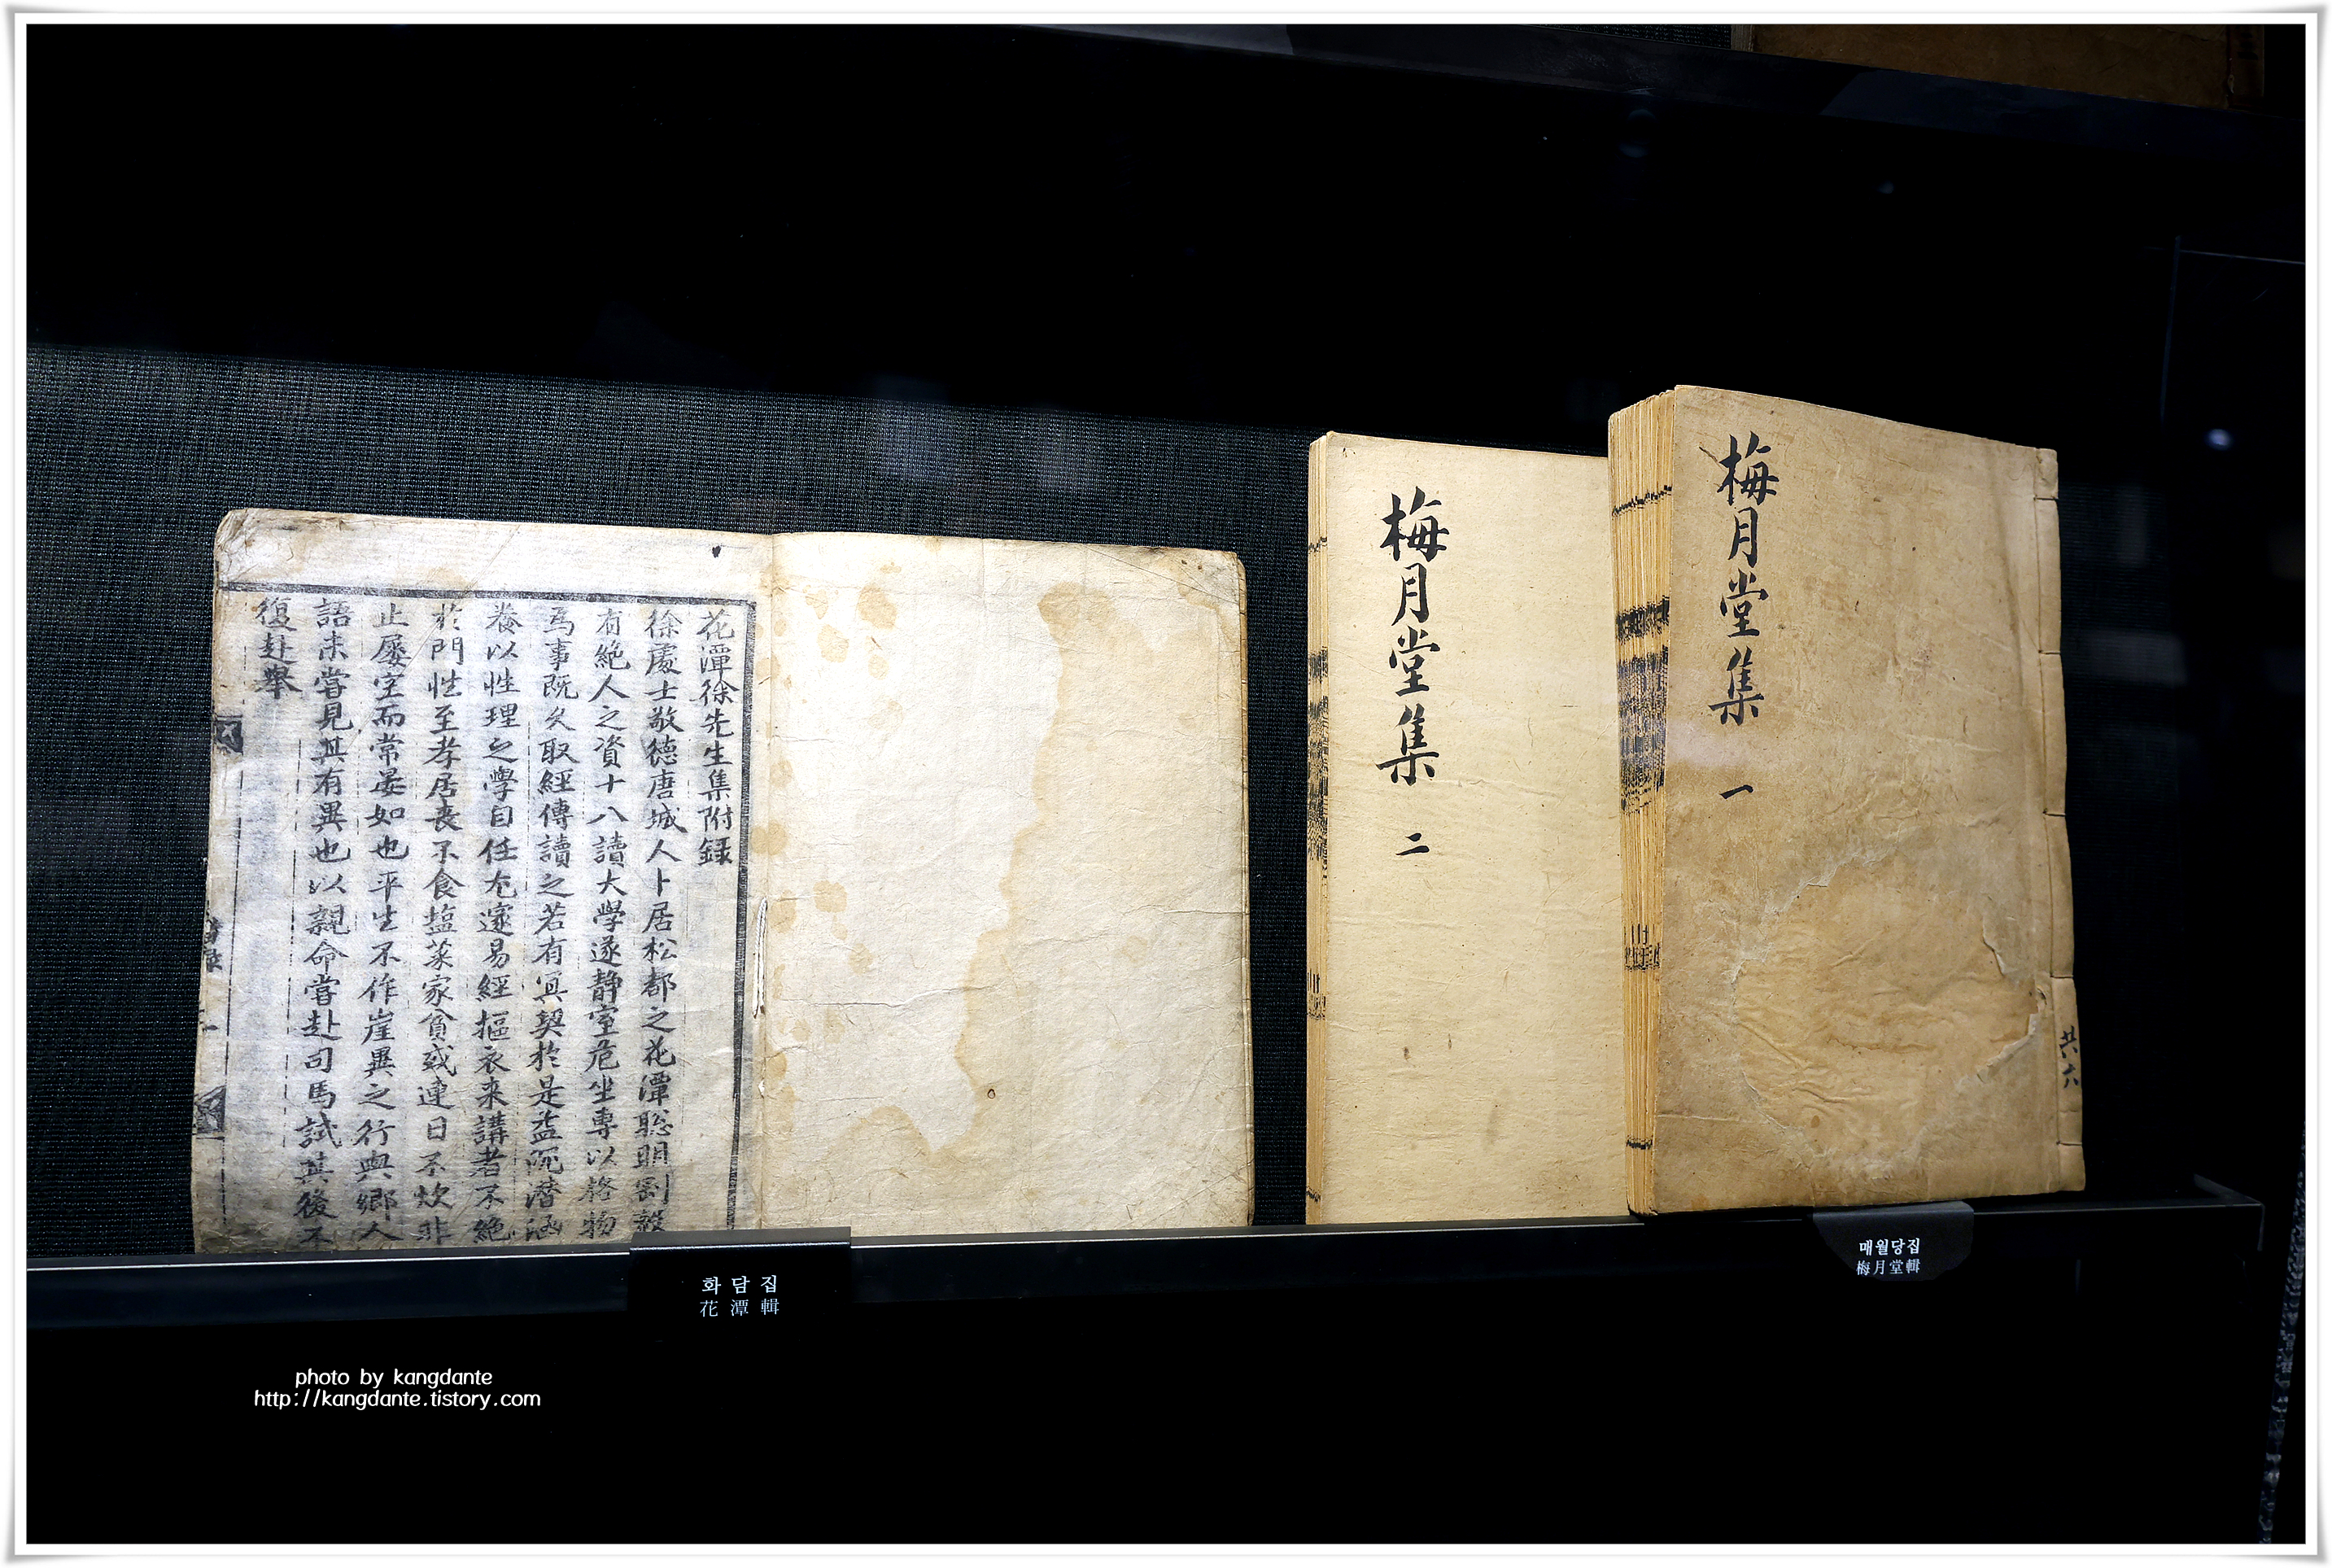 花潭徐先生集附録
徐處士敬德唐城人卜居松都之花潭聡明剛毅
有絶人之資十八讀大學遂静室危坐專以格物
爲事既久取經傳讀之若有冥契於是益沉潜涵
養以性理之學自任尤邃易經摳衣来講者不絶
於門性至孝居丧不食塩菜家貧或連日不炊非
止屢空而常晏如也平生不作崖異之行與鄉人
語未嘗見其有異也以親命嘗赴司馬試其後不
復赴舉
梅月堂集 二
梅月堂集 一
共六
화담집
花潭輯
매월당집
梅月堂輯
photo by kangdante
http://kangdante.tistory.com